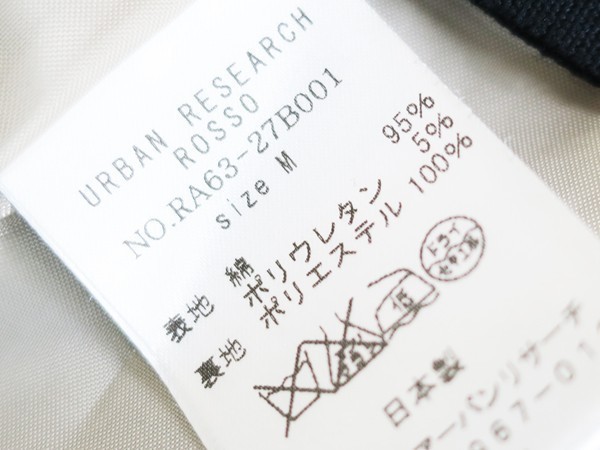 URBAN RESEARCH
ROSSO
NO.RA63-27B001
size M
表地 綿 95%
ポリウレタン 5%
裏地 ポリエステル 100%
ドライ
セキユ系
日本製
アーバンリサーチ